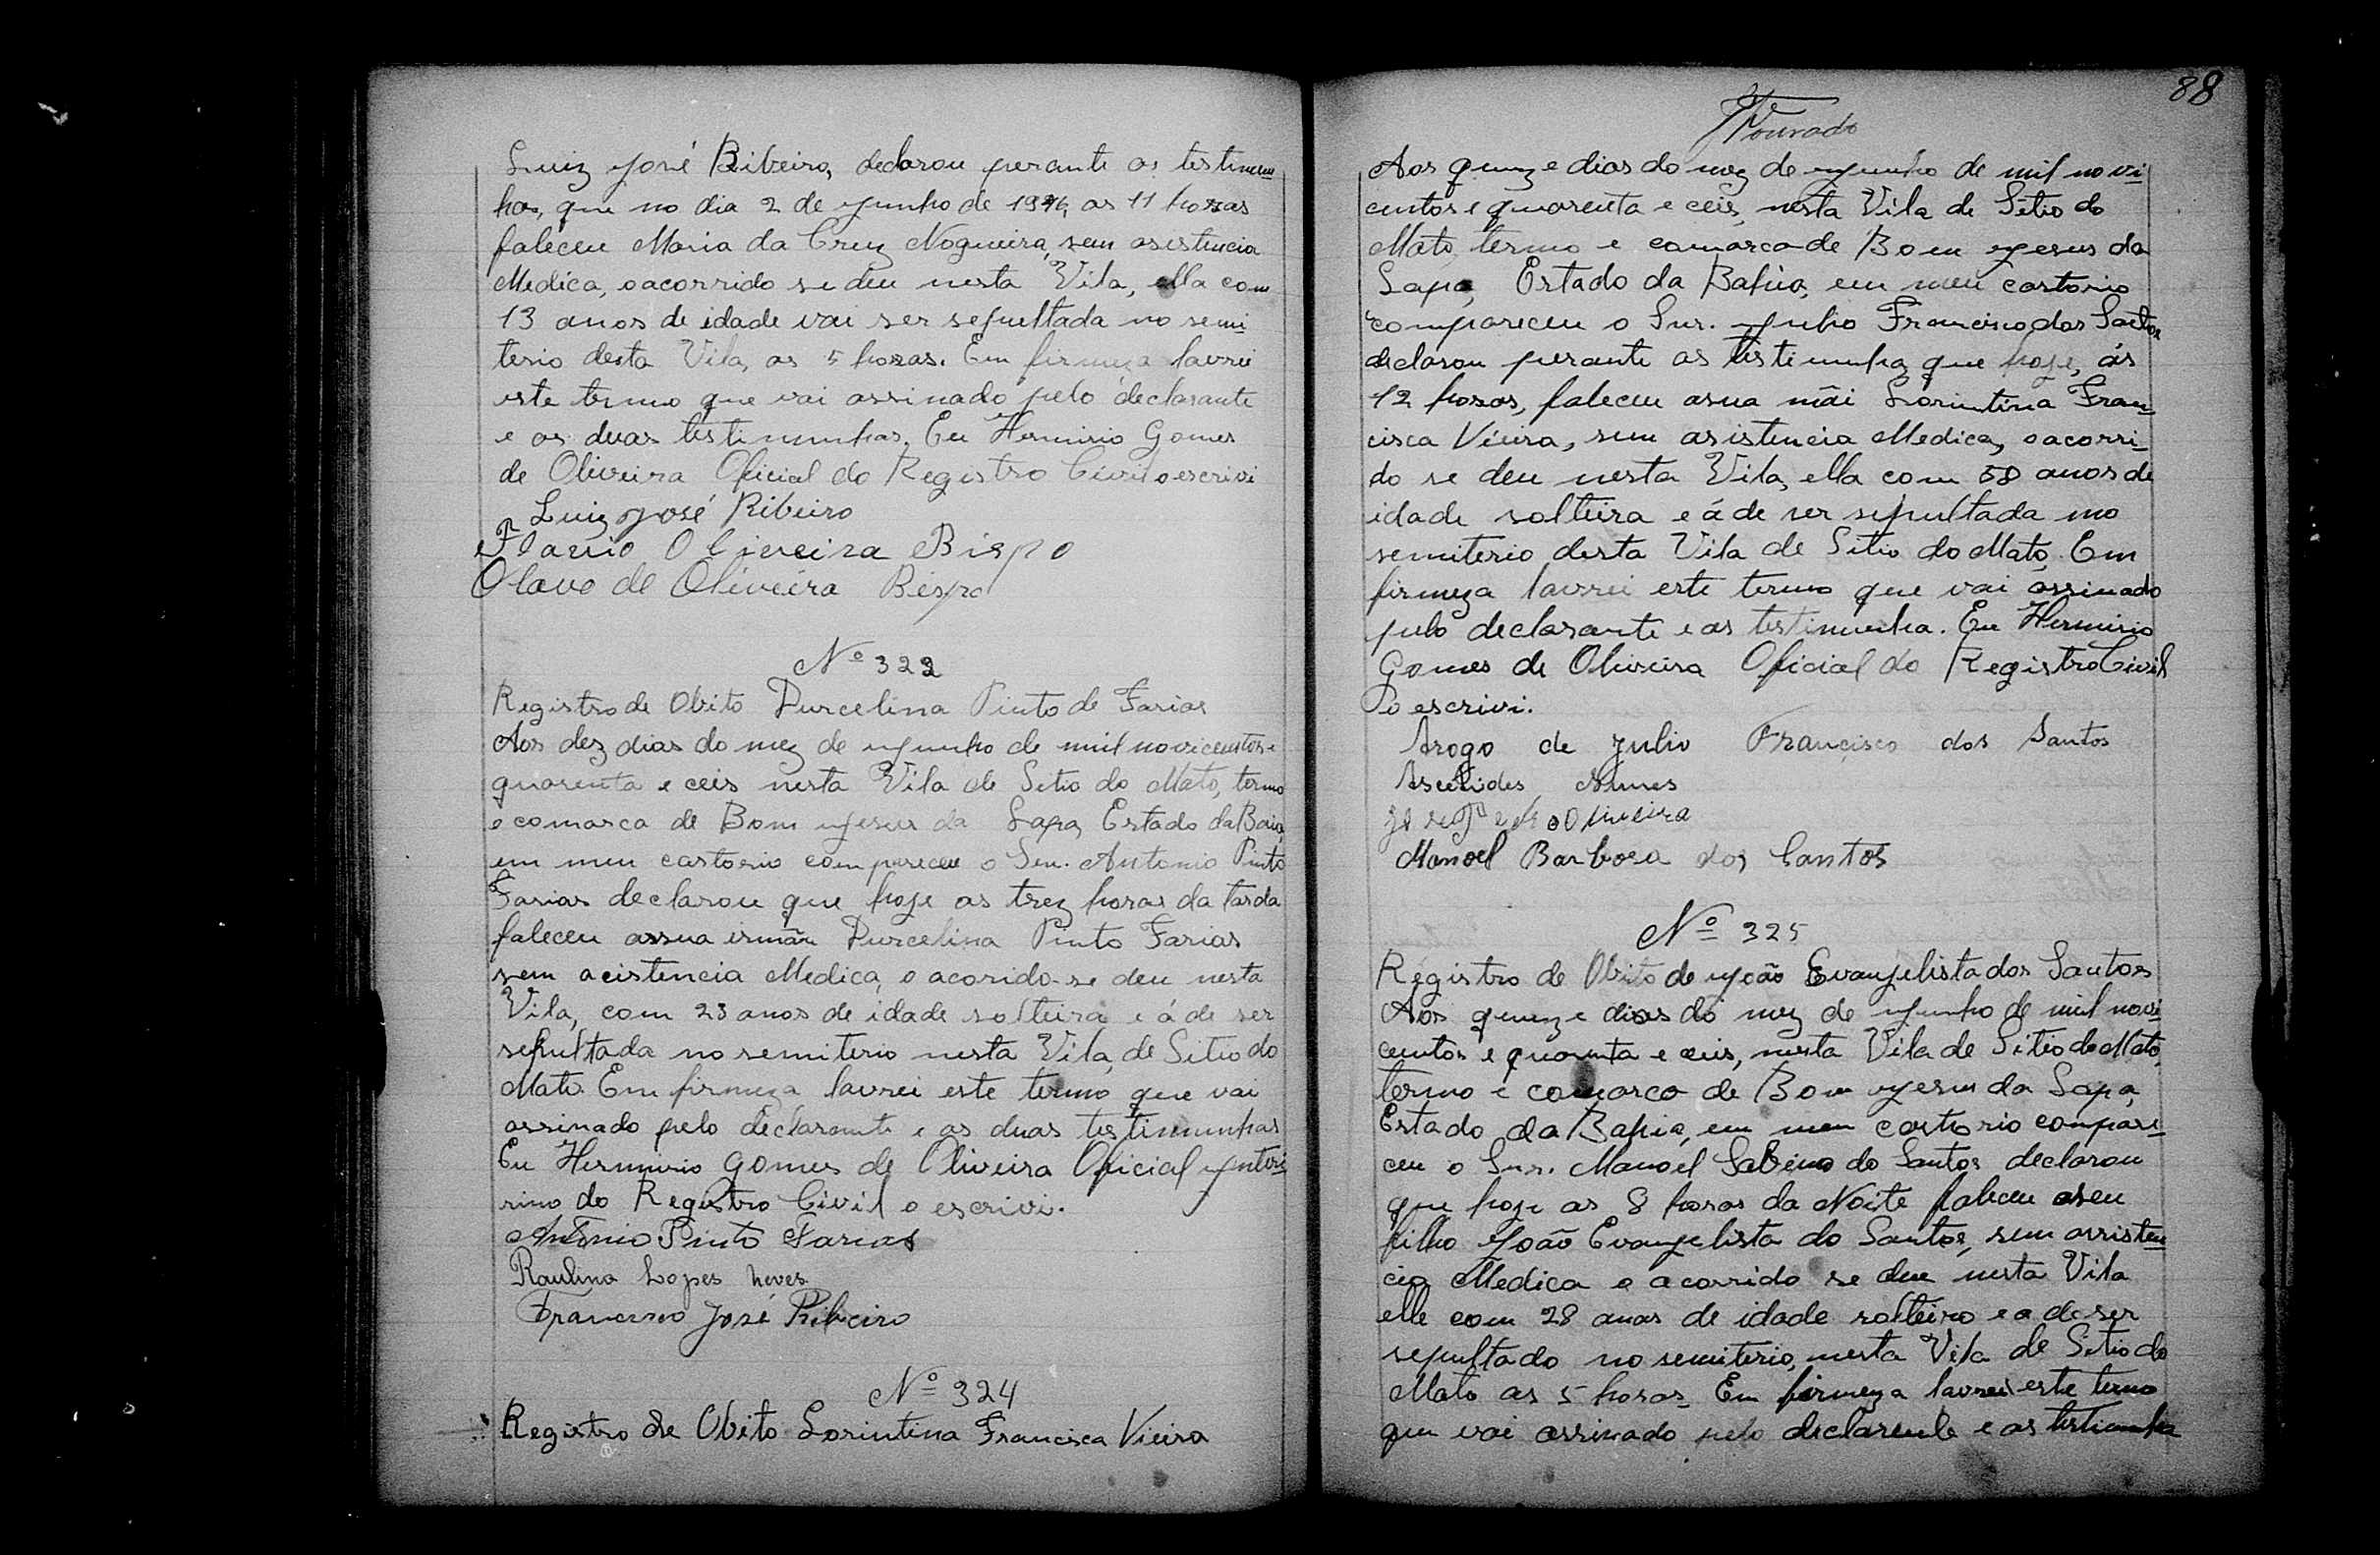 Luiz José Ribeiro, declarou perante as testimu
has, que no dia 2 de junho de 1946, as 11 horas
faleceu Maria da Cruz Nogueira, sem asistencia
Medica, o acorrido se deu nesta Vila, ella com
13 anos de idade vai ser sepultada no semi
terio desta Vila, as 5 horas. Em firmeza lavrei
este termo que vai assinado pelo declarante
e as duas testimunhas. Eu Herminio Gomes
de Oliveira Oficial do Registro Civil o escrivi
Luiz José Ribeiro
Flavio Oliveira Bispo
Olavo de Oliveira Bispo
Nº 322
Registro de Obito Durcelina Pinto de Farias
Aos dez dias do mez de junho de mil novicentos e
quarenta e ceis nesta Vila de Sitio do Mato, termo
e comarca de Bom Jesus da Lapa, Estado da Baia,
em meu cartorio compareceu o Snr. Antonio Pinto
Farias declarou que hoje as trez horas da tarda
faleceu assua irmãn Durcelina Pinto Farias
sem acistencia Medica, o acorido se deu nesta
Vila, com 23 anos de idade solteira e á de ser
sepultada no semiterio nesta Vila, de Sitio do
Mato. Em firmeza lavrei este termo que vai
assinado pelo declarante e as duas testimunhas
Eu Herminio Gomes de Oliveira Oficial Jnteri
rino do Registro Civil o escrivi.
Antonio Pinto Farias
Raulino Lopes Neves
Francisco José Ribeiro
Nº 324
Registro de Obito Lorintina Francisca Vieira
88
Dourado
Aos quinze dias do mez de junho de mil novi-
centos e quarenta e ceis, nesta Vila de Sitio do
Mato, termo e comarca de Bom Jesus da
Lapa, Estado da Bahia, em meu cartorio
compareceu o Snr. Julio Francisco dos Santos
declarou perante as testimunha que hoje, ás
12 horas, faleceu asua mãi Lorintina Fran-
cisca Vieira, sem asistencia Medica, o acorri-
do se deu nesta Vila, ella com 58 anos de
idade solteira e á de ser sepultada no
semiterio desta Vila de Sitio do Mato. Em
firmeza lavrei este termo que vai assinado
pelo declarante e as testimunha. Eu Herminio
Gomes de Oliveira Oficial do Registro Civil
o escrivi.
Arogo de Julio Francisco dos Santos
Ascelides Nunes
Manoel Barbosa dos Santos
Nº 325
Registro de Obito de João Evangelista dos Santos
Aos quinze dias do mez de junho de mil novi-
centos e quarenta e ceis, nesta Vila de Sitio do Mato,
termo e comarca de Bom Jesus da Lapa,
Estado da Bahia, em meu cartorio compare-
ceu o Snr. Manoel Sabino do Santos declarou
que hoje as 8 horas da Noite faleceu aseu
filho João Evangelista do Santos, sem assisten
cia Medica o acorrido se deu nesta Vila
elle com 28 anos de idade solteiro e a de ser
sepultado no semiterio, nesta Vila de Sitio do
Mato as 5 horas. Em firmeza lavrei este termo
que vai assinado pelo declarente e as testimunha